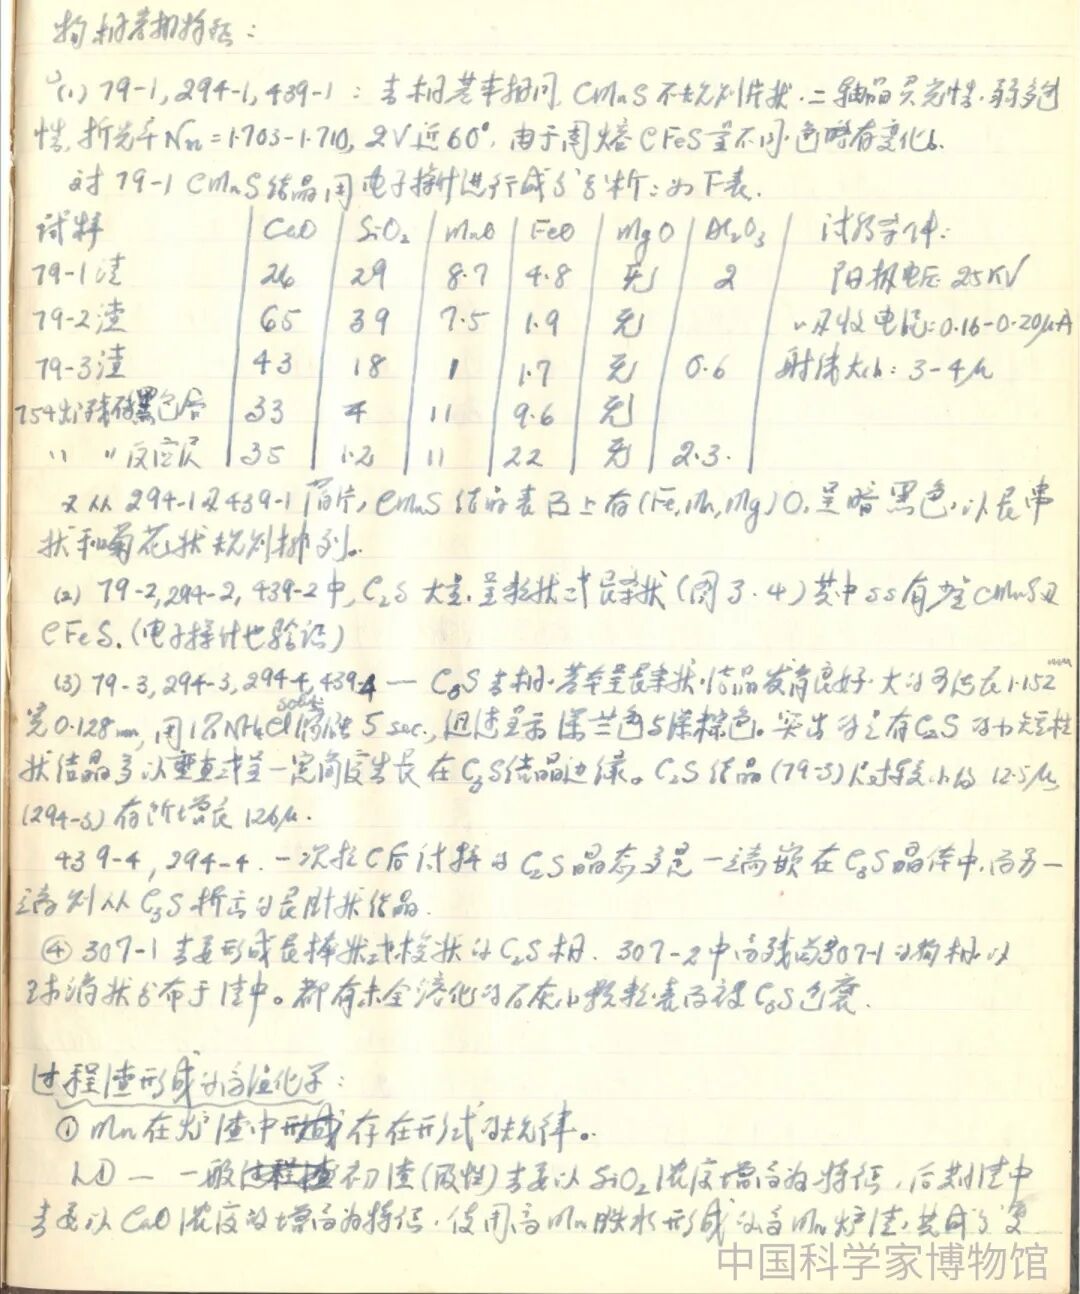 物相岩相特征:
(1) 79-1, 294-1, 439-1: 主相基本相同, CMnS 不规则片状, 二轴晶 光性, 弱多色
性, 折光率 Nm=1.703-1.710, 2V近60°, 由于固熔CFeS呈不同, 色略有变化.
对 79-1 CMnS结晶用电子探针进行成分分析: 如下表.
试样 CaO SiO₂ MnO FeO MgO Al₂O₃ 试验条件:
79-1渣 26 29 8.7 4.8 无 2 阳极电压 25KV
79-2渣 65 39 7.5 1.9 无 吸收电流: 0.16-0.20μA
79-3渣 43 18 1 1.7 无 0.6 射束大小: 3-4μ
754炉 黑色 33 4 11 9.6 无
〃 〃 反应层 35 1.2 11 22 无 2.3.
又从 294-1及439-1 薄片, CMnS 结晶表面上有(Fe,Mn,Mg)O, 呈暗黑色, 以长串
状和菊花状规则排列.
(2) 79-2, 294-2, 439-2中, C₂S 大量, 呈 状或长条状 (图3.4) 其中ss有少量CMnS及
CFeS. (电子探针也验证)
(3) 79-3, 294-3, 294-4, 439-4 — C₃S 主相, 基本呈长条状, 结晶发育良好, 大的可达长1.152 mm
宽0.128mm, 用1%NH₄Cl solu. 腐蚀 5 sec., 迅速呈示深兰色与深棕色. 突出的是有C₂S 的 短柱
状结晶多以垂直或呈一定角度生长在C₃S结晶边缘. C₂S结晶(79-3)尺寸较小的 12.5μ,
(294-3) 有所增长 126μ.
439-4, 294-4. 一次拉C后试样的 C₂S晶态多是一端嵌在C₃S晶体中, 而另一
端则从C₃S析出的长 状结晶.
④ 307-1 主要形成长棒状或 状的C₂S相. 307-2中 残留307-1的物相, 以
球滴状分布于渣中. 都有未全溶化的石灰小颗粒表面被C₃S包裹.
过程渣形成的高温化学:
① Mn在炉渣中存在形式的规律.
1.① — 一般初渣(酸性)主要以SiO₂浓度增高为特征, 后期渣中
主要以CaO浓度的增高为特征. 使用高Mn铁水形成的高Mn炉渣, 其成分变
中国科学家博物馆